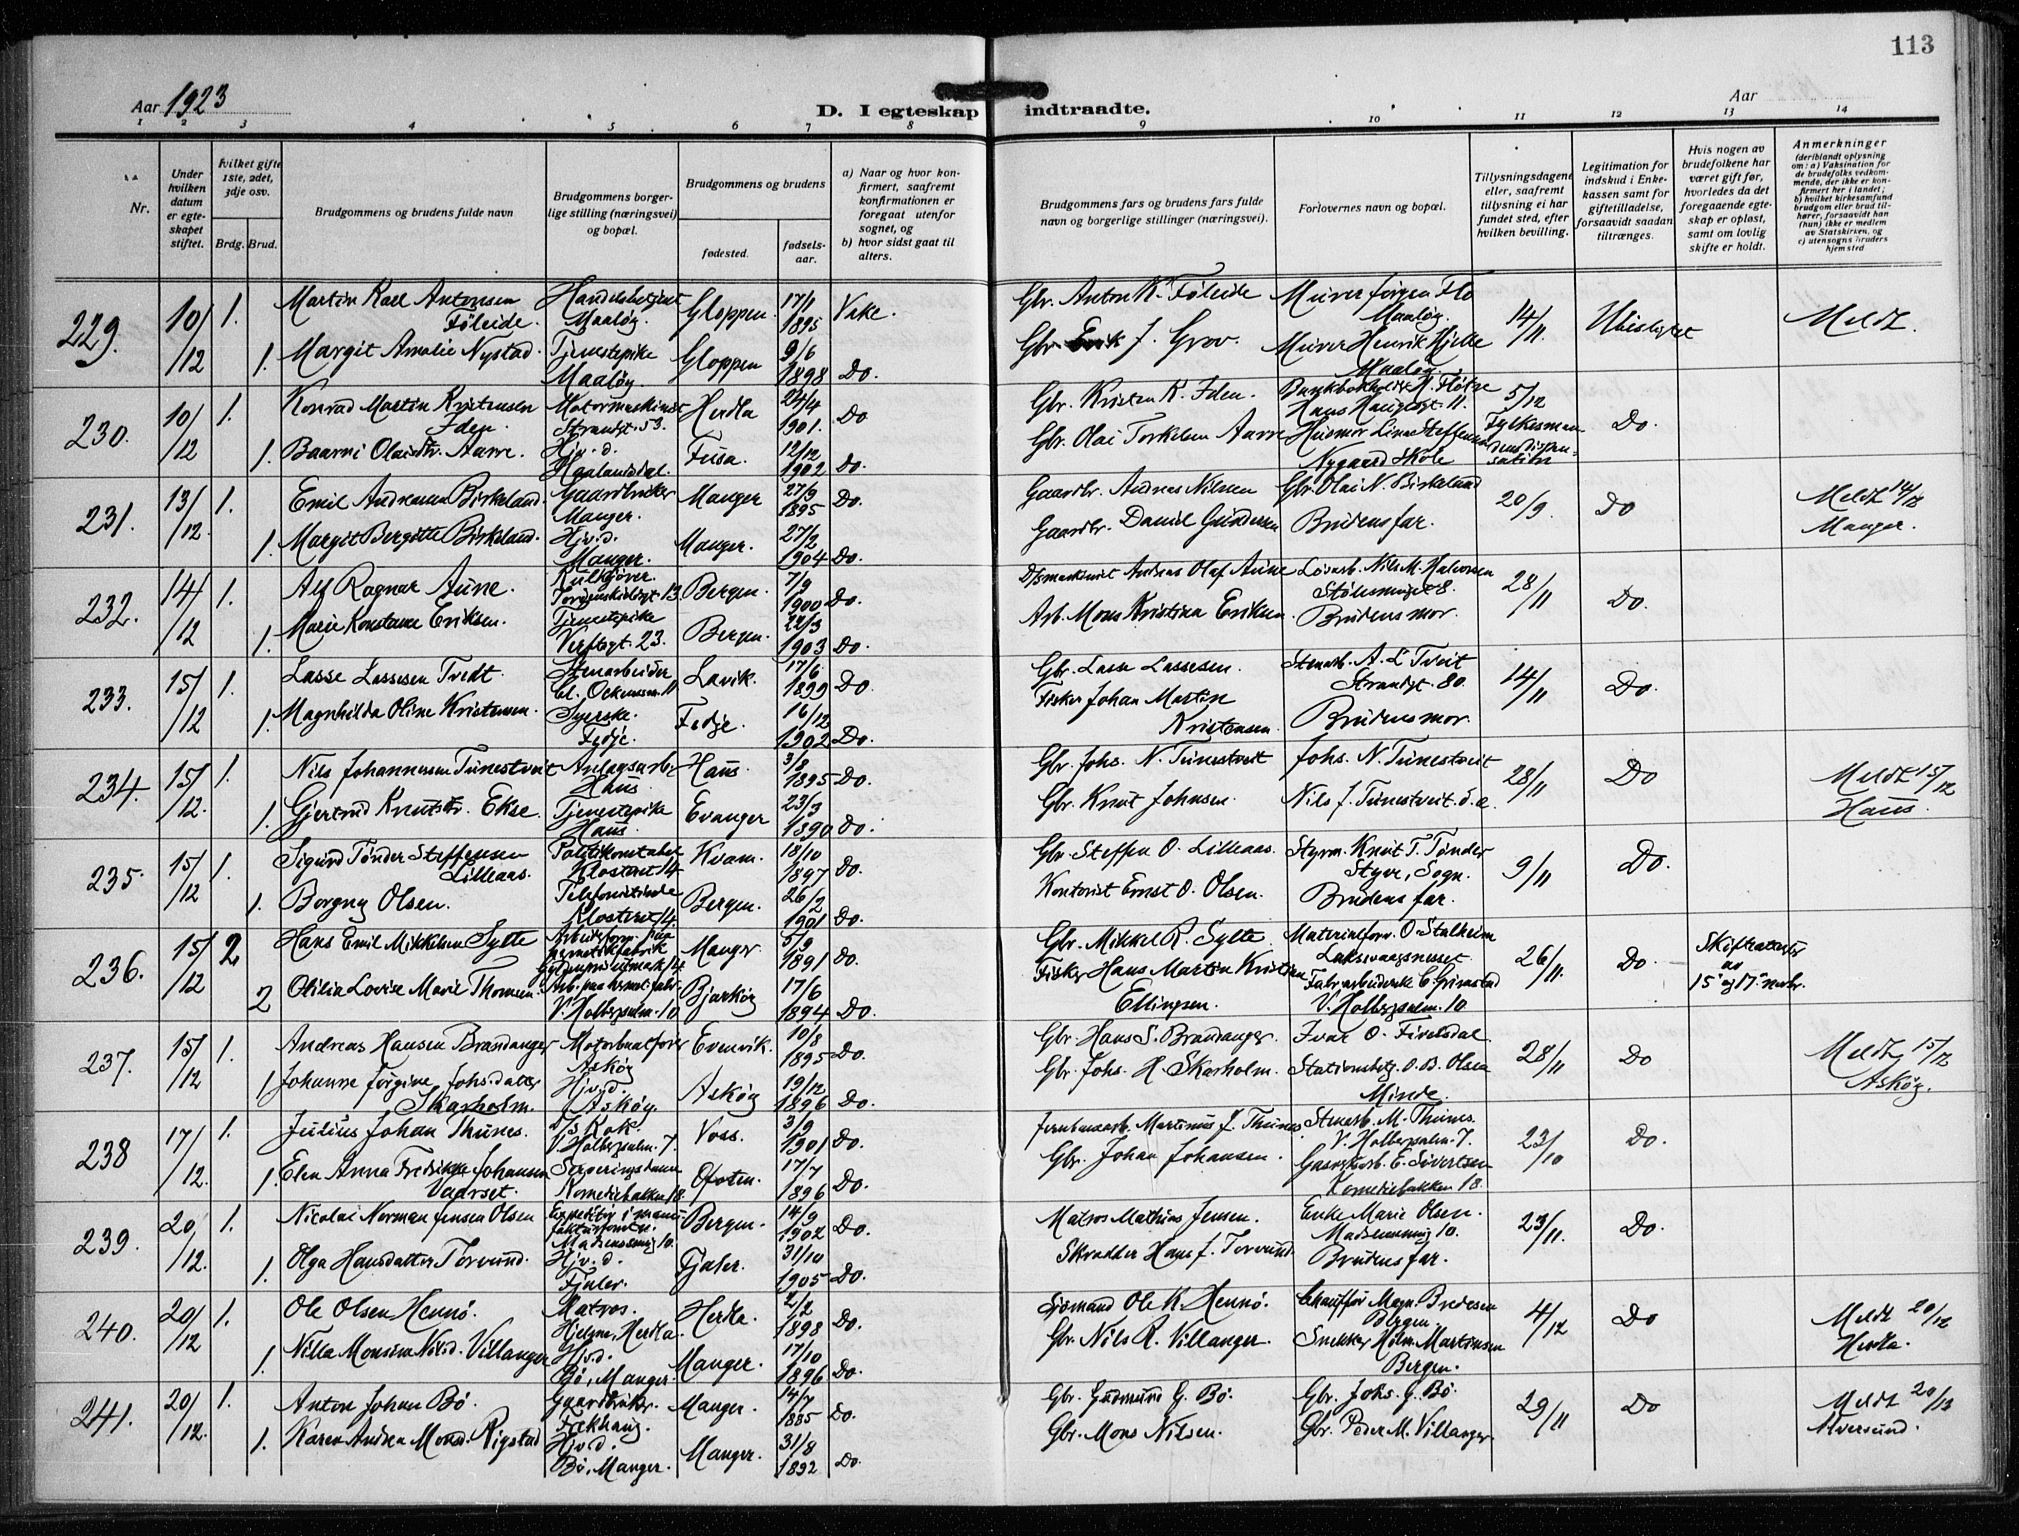 113
Aar 1923
D. I egteskap indtraadte.
Aar
1 2 3 4 5 6 7 8 9 10 11 12 13 14
Nr.
Under hvilken datum er egteskapet stiftet.
hvilket gifte 1ste, 2det, 3dje osv.
Brdg. Brud.
Brudgommens og brudens fulde navn
Brudgommens borgerlige stilling (næringsvei) og bopæl.
Brudgommens og brudens
fødested.
fødselsaar.
a) Naar og hvor konfirmert, saafremt konfirmationen er foregaat utenfor sognet, og
b) hvor sidst gaat til alters.
Brudgommens fars og brudens fars fulde navn og borgerlige stillinger (næringsvei).
Forlovernes navn og bopæl.
Tillysningsdagene eller, saafremt tillysning ei har fundet sted, efter hvilken bevilling.
Legitimation for indskud i Enkekassen samt for giftetilladelse, forsaavidt saadan tiltrænges.
Hvis nogen av brudefolkene har været gift før, hvorledes da det foregaaende egteskap er opløst, samt om lovlig skifte er holdt.
Anmerkninger
(deriblandt oplysning om: a) Vaksination for de brudefolks vedkommende, der ikke er konfirmert her i landet; b) hvilket kirkesamfund brudgom eller brud tilhører, forsaavidt han (hun) ikke er medlem av Statskirken, og c) utensogns bruders hjemsted
229. 10/12 1. Martin Karl Antonsen Føleide. Handelsbetjent Maaløy. Gloppen. 17/1 1895 Gbr. Anton K. Føleide Murer Jørgen Flo Maaløy. 14/11. Meldt.
1. Margit Amalie Nystad. Tjenestepike Maaløy. Gloppen 9/6 1898 Do. Gbr. J. Grov. Murer Henrik Hjelle Maaløy
230. 10/12 1. Konrad Martin Kristensen Iden. Motormaskinist Strandgt. 53. Herdla 24/4 1901. Do Gbr. Kristen K. Iden. 5/12 Fylkesmandens dispensation Do.
1. Olaidtr. Aarre. Hjv. d. Fusa. 12/12 1902 Do. Gbr. Olai Torkelsen Aarre Nygaard Skole
231. 13/12 1. Emil Andreassen Birkeland. Gaardbruker Manger. Manger 27/9 1895 Do. Gaardbr. Andreas Nilsen Gbr. Olai N. Birkeland 20/9. Do Meldt 14/12 Manger.
1. Margit Bergitte Birkeland. Hjv. d. Manger. Manger. 27/2 1904 Do. Gaardbr. Daniel Brudens far.
232. 14/12 1. Alf Ragnar Aune. Bergen. 7/9 1900 Do. Andreas Olaf Aune Nils M. Halvorsen 28/11 Do.
1. Marie Konstanse Eriksen. Tjenestepike Verftsgt. 23. Bergen. 22/3 1903 Do. Arb. Mons Kristina Eriksen Brudens mor.
233. 15/12 1. Lasse Lassesen Tvedt. Stenarbeider Lavik. 17/6 1899 Do Gbr. Lasse Lassesen. Stenarb. A. L. Tveit Strandgt. 80. 14/11 Do.
1. Magnhilda Oline Kristensen. Syerske. Fedje. Fedje. 16/12 1902 Do. Fisker Johan Martin Kristensen Brudens mor.
234. 15/12. 1. Nils Johannessen Tunestveit Anlægsarb. Haus Haus. 3/8 1895 Do. Gbr. Johs. N. Tunestveit Johs. N. Tunestveit 28/11 Do Meldt 15/12 Haus.
1. Gjertrud Knutsdtr. Ekse. Tjenestepike Haus. Evanger 23/3 1890 Do. Gbr. Knut Johnsen. Nils J. Tunestveit
235. 15/12 1. Sigurd Tønder Steffensen Lilleaas. Politikonstabel Klostret 14 Kvam. 18/10 1897 Do. Gbr. Steffen O. Lilleaas. Styrm. Knut T. Tønder Styve, Sogn. 9/11 Do.
1. Borgny Olsen. Telefonistinde Klostret 14. Bergen. 26/2 1901 Do. Kontorist Ernst O. Olsen. Brudens far.
236. 15/12 2. Hans Emil Mikkelsen Sylte Manger 5/9 1891 Do. Gbr. Mikkel R. Sylte. Materialforv. O. Stalheim Laksevaagsnesset 26/11. Do. Skifteattester av 15 og 17 novbr.
2 Otilia Lovise Marie Thomsen. V. Holbergsalm. 10 Bjarkøy 17/6 1894 Do. Fisker Hans Martin Kristian Ellingsen. C. Grimstad V. Holbergsalm. 10
237. 15/12 1. Andreas Hansen Brandanger Motorbaatfører Askøy Evenvik. 10/8 1895 Do. Gbr. Hans S. Brandanger. Ivar O. Fivelsdal 28/11 Do Meldt 15/12 Askøy.
1. Johanne Jørgine Johs.datter Skarholm. Hjv. d. Askøy. Askøy 19/12 1896 Do. Gbr. Johs. H. Skarholm. Stationsbetj. O. B. Olsen Minde.
238 17/12. 1. Julius Johan Thunes. D/s Kok. V. Holbergsalm. 7. Voss. 3/9 1901 Do. Jernbanearb. Martinus J. Thunes Stenarb. M. Thunes. V. Holbergsalm. 7. 23/10 Do.
1. Elen Anna Fredrikke Johansen Vaarset. Serveringsdame Komediebakken 18. Ofoten. 17/7 1896 Do. Gbr. Johan Johansen. Gasverkarb. E. Sivertsen Komediebakken 18.
239. 20/12. 1. Nicolai Norman Jensen Olsen Bergen. 14/9 1902 Do. Matros Mathias Jensen. Enke Marie Olsen. 23/11. Do.
1. Olga Hansdatter Torvund. Hjv. d. Fjaler. Fjaler. 31/10 1905 Do. Skrædder Hans J. Torvund. Brudens far.
240. 20/12 1. Ole Olsen Hennø. Matros. Hjelme, Herdla. Herdla. 2/2 1898 Do. Sjømand Ole K. Hennø. Chauffør Magn. Bredesen Bergen. 4/12 Do Meldt 20/12 Herdla.
1. Nilla Monsine Nilsd. Villanger Hjv. d. Bø, Manger. Manger. 17/10 1896 Do. Gbr. Nils R. Villanger. Snekker Hilm. Martinsen Bergen.
241. 20/12. 1. Anton Johan Bø. Gaardbruker. Manger. 14/7 1885 Do. Gbr. Gudmund G. Bø. Gbr. Johs. G. Bø. 29/11 Do Meldt 20/12 Alversund.
1. Karen Andrea Monsd. Rigstad Hjv. d. Bø, Manger. Manger. 31/8 1892 Do. Gbr. Mons Nilsen. Gbr. Peder M. Villanger.